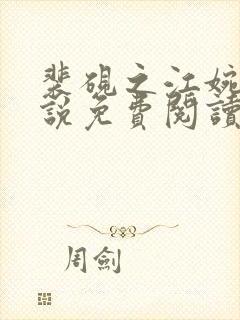 裴硯之江婉
說免費閱讀
周劍